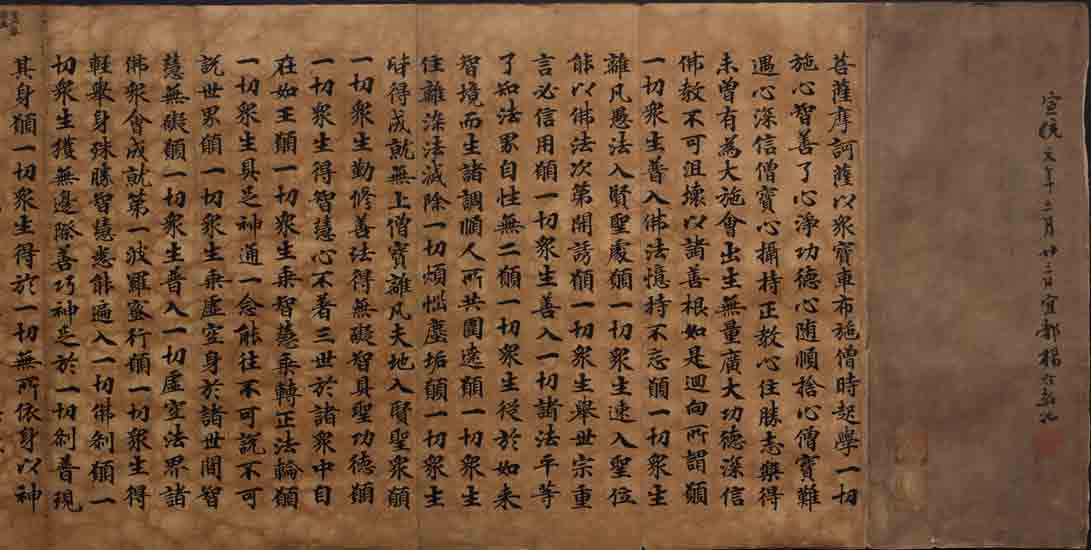 宣統元年三月廿二日宜都楊守敬記
菩薩摩訶薩以衆寶車布施僧時起學一切
施心智善了心淨功德心随順捨心僧寶難
遇心深信僧寶心攝持正教心住勝志樂得
未曾有為大施會出生無量廣大功德深信
佛教不可沮壞以諸善根如是迴向所謂願
一切衆生普入佛法憶持不忘願一切衆生
離凡愚法入賢聖處願一切衆生速入聖位
能以佛法次第開誘願一切衆生舉世宗重
言必信用願一切衆生善入一切諸法平等
了知法界自性無二願一切衆生從於如来
智境而生諸調順人所共圍遶願一切衆生
住離染法滅除一切煩惱塵垢願一切衆生
皆得成就無上僧寶離凡夫地入賢聖衆願
一切衆生勤修善法得無礙智具聖功德願
一切衆生得智慧心不著三世於諸衆中自
在如王願一切衆生乘智慧乘轉正法輪願
一切衆生具足神通一念能往不可說不可
說世界願一切衆生乘虛空身於諸世間智
慧無礙願一切衆生普入一切虛空法界諸
佛衆會成就第一波羅蜜行願一切衆生得
輕舉身殊勝智慧悉能遍入一切佛刹願一
切衆生獲無邊際善巧神足於一切刹普現
其身願一切衆生得於一切無所依身以神